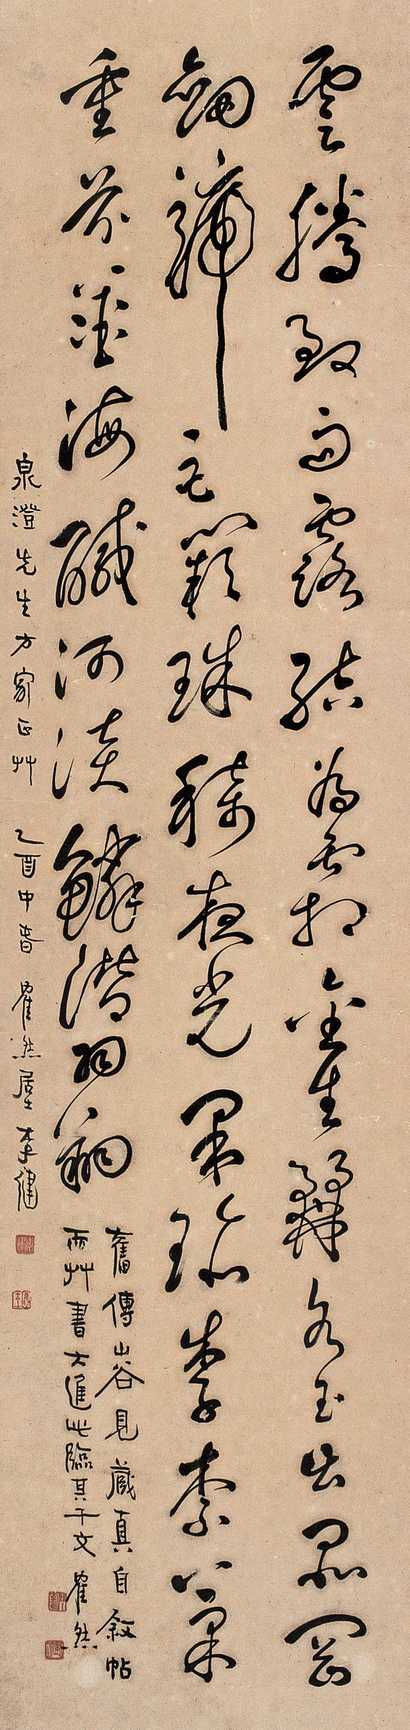 雲騰致雨露結為霜金生麗水玉出昆岡
劍號巨闕珠稱夜光果珍李柰菜
重芥薑海鹹河淡鱗潛羽翔
舊傳山谷見藏真自敘帖
而艸書大進此臨其千文 瞿然
泉澄先生方家正艸 乙酉中春 瞿然居士李健